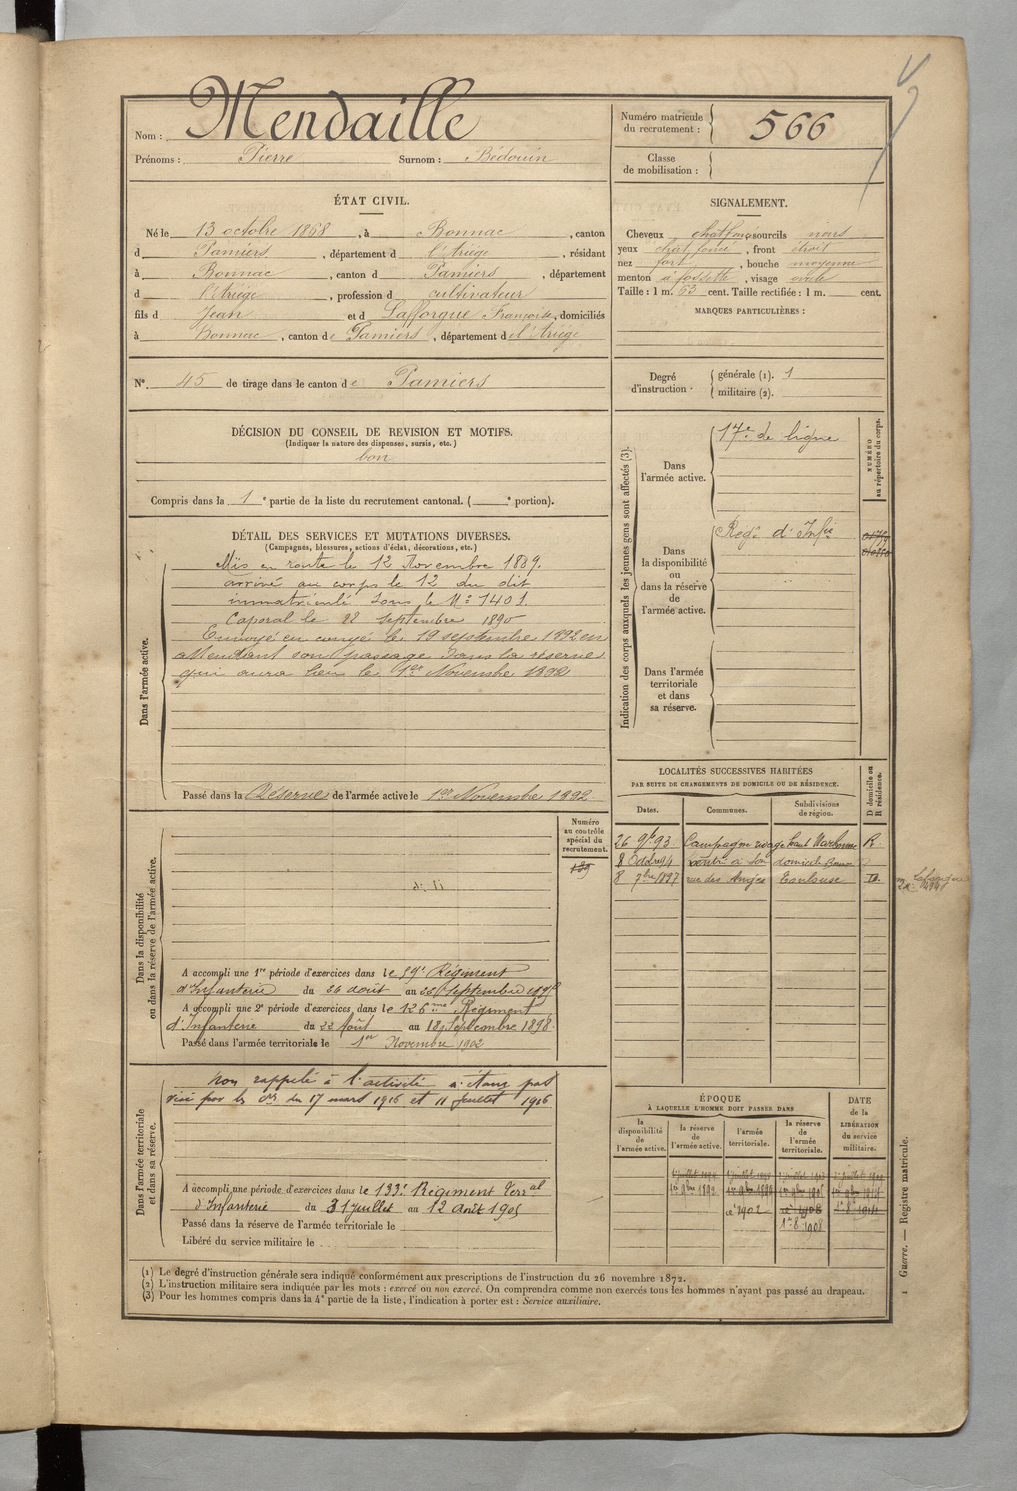 Nom : Mendaille
Prénoms : Pierre Surnom : Bédouin
Numéro matricule du recrutement : 566
Classe de mobilisation :
ÉTAT CIVIL.
Né le 13 octobre 1868, à Bonnac, canton
d Pamiers, département d l'Ariège, résidant
à Bonnac, canton d Pamiers, département
d l'Ariège, profession d cultivateur
fils d Jean et d Lafforgue Françoise, domiciliés
à Bonnac, canton de Pamiers, département de l'Ariège
N° 45 de tirage dans le canton de Pamiers
SIGNALEMENT.
Cheveux chat foncé sourcils noirs
yeux chat foncé, front étroit
nez fort, bouche moyenne
menton à fossette, visage ovale
Taille : 1 m. 63 cent. Taille rectifiée : 1 m. cent.
MARQUES PARTICULIÈRES :
Degré d'instruction :
générale (1). 1
militaire (2).
DÉCISION DU CONSEIL DE REVISION ET MOTIFS.
(Indiquer la nature des dispenses, sursis, etc.)
bon
Compris dans la 1e partie de la liste du recrutement cantonal. ( e portion).
DÉTAIL DES SERVICES ET MUTATIONS DIVERSES.
(Campagnes, blessures, actions d'éclat, décorations, etc.)
Dans l'armée active.
Mis en route le 12 Novembre 1889.
arrivé au corps le 12 du dit
immatriculé sous le N° 1401.
Caporal le 22 septembre 1890
Envoyé en congé le 19 septembre 1892 en
attendant son passage dans la réserve
qui aura lieu le 1er Novembre 1892
Passé dans la Réserve de l'armée active le 1er Novembre 1892
Indication des corps auxquels les jeunes gens sont affectés (3).
NUMÉRO au répertoire du corps.
Dans l'armée active.
17e de ligne
Dans la disponibilité ou dans la réserve de l'armée active.
Regt d'Infie
Dans l'armée territoriale et dans sa réserve.
LOCALITÉS SUCCESSIVES HABITÉES
PAR SUITE DE CHANGEMENTS DE DOMICILE OU DE RÉSIDENCE.
D domicile ou R résidence.
Dates. Communes. Subdivisions de région.
26 9bre 93 Campagne Narbonne R.
8 rentré à son domicile
8 7bre 1897 rue des Anges Toulouse D.
Dans la disponibilité ou dans la réserve de l'armée active.
Numéro au contrôle spécial du recrutement.
A accompli une 1re période d'exercices dans le 59e Régiment
d'Infanterie du 26 août au septembre
A accompli une 2e période d'exercices dans le 126ème Régiment
d'Infanterie du 22 Août au 18 Septembre 1898
Passé dans l'armée territoriale le 1er Novembre 1902
Dans l'armée territoriale et dans sa réserve.
Non rappelé à l'activité n'étant pas
visé par les du 17 mars 1916 et 11 juillet 1916
A accompli une période d'exercices dans le 133e Régiment Terral
d'Infanterie du 31 juillet au 12 Août 1905
Passé dans la réserve de l'armée territoriale le
Libéré du service militaire le
ÉPOQUE
À LAQUELLE L'HOMME DOIT PASSER DANS
DATE de la LIBÉRATION du service militaire.
la disponibilité de l'armée active.
la réserve de l'armée active.
l'armée territoriale.
la réserve de l'armée territoriale.
1er 9bre 1892
1902
1908
(1) Le degré d'instruction générale sera indiqué conformément aux prescriptions de l'instruction du 26 novembre 1872.
(2) L'instruction militaire sera indiquée par les mots : exercé ou non exercé. On comprendra comme non exercés tous les hommes n'ayant pas passé au drapeau.
(3) Pour les hommes compris dans la 4e partie de la liste, l'indication à porter est : Service auxiliaire.
Guerre. — Registre matricule.